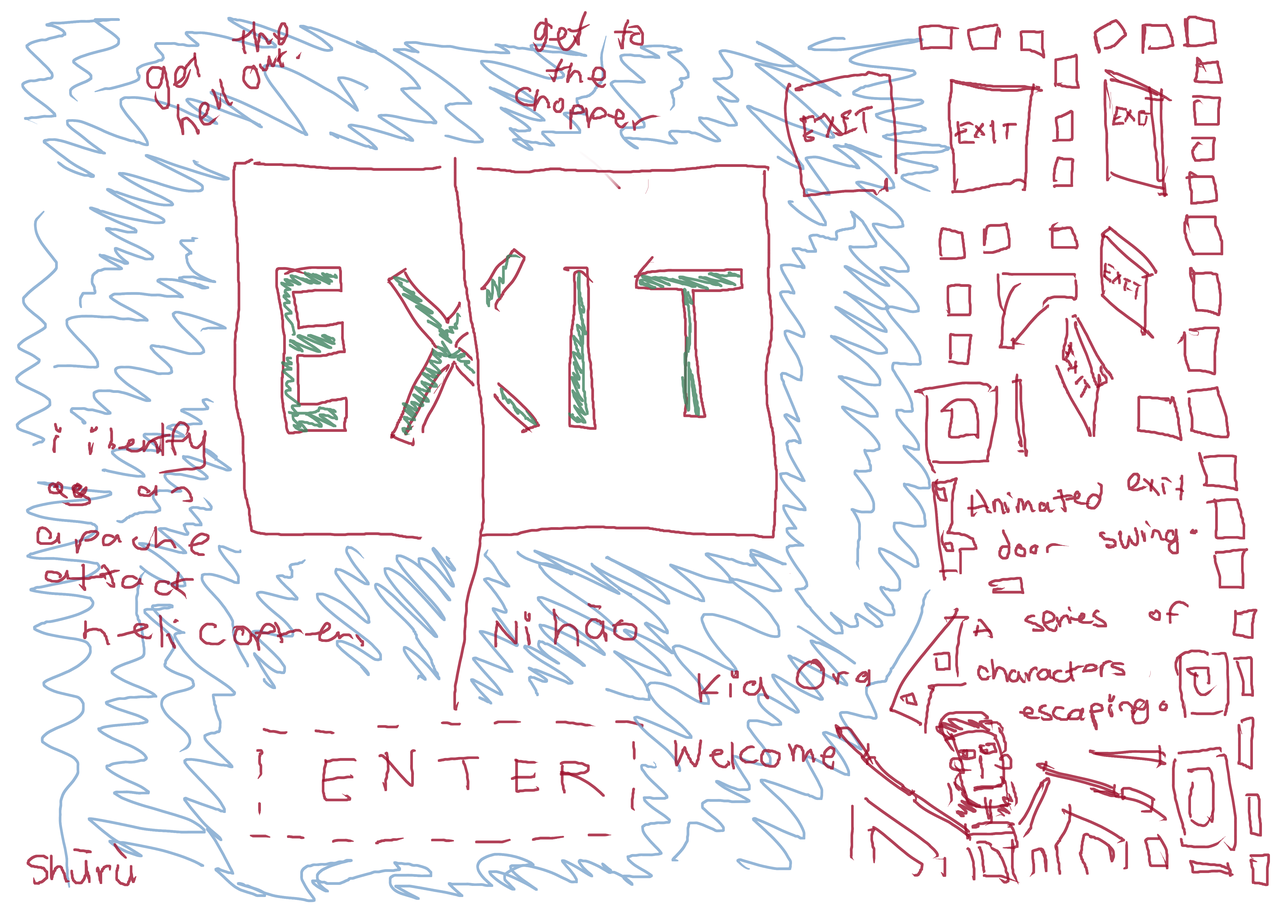 get the
hell out.
get to
the
chopper
EXIT
EXIT
EXIT
EXIT
EXIT
EXIT
i identfy
as an
apache
attact
helicopter.
Animated exit
door swing.
A series of
characters
escaping.
Ni hāo
Kia Ora
Welcome
ENTER
Shūrù